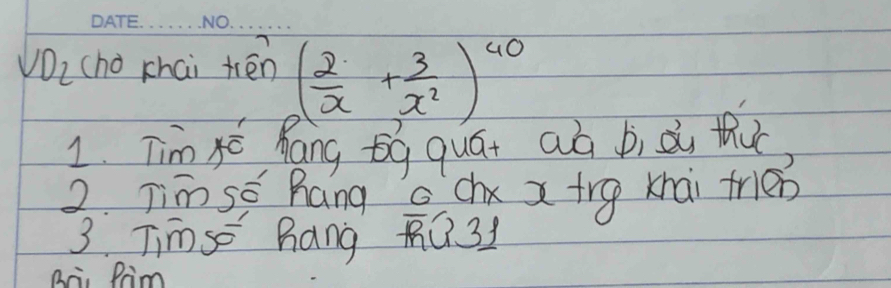 DATE.......NO.......
VD2 cho khai triển (2/x + 3/x²)^40
1. Tìm số hạng tổg quát của biểu thức
2. Tìm số hạng ko chx x trg khai triển
3. Tìm số hạng thứ 31
Bài làm